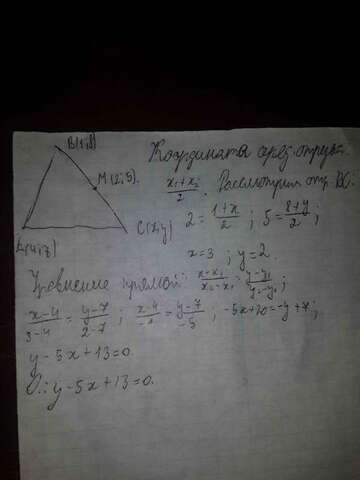 B(1;8)
M(2;5).
C(x;y)
A(4;7)
Координата серед. отрезка.
x₁+x₂/2. Рассмотрим отр. BC:
2 = 1+x/2; 5 = 8+y/2;
x=3; y=2.
Уравнение прямой: x-x₁/x₂-x₁ = y-y₁/y₂-y₁;
x-4/3-4 = y-7/2-7; x-4/-1 = y-7/-5; -5x+20=-y+7;
y-5x+13=0.
О.: y-5x+13=0.